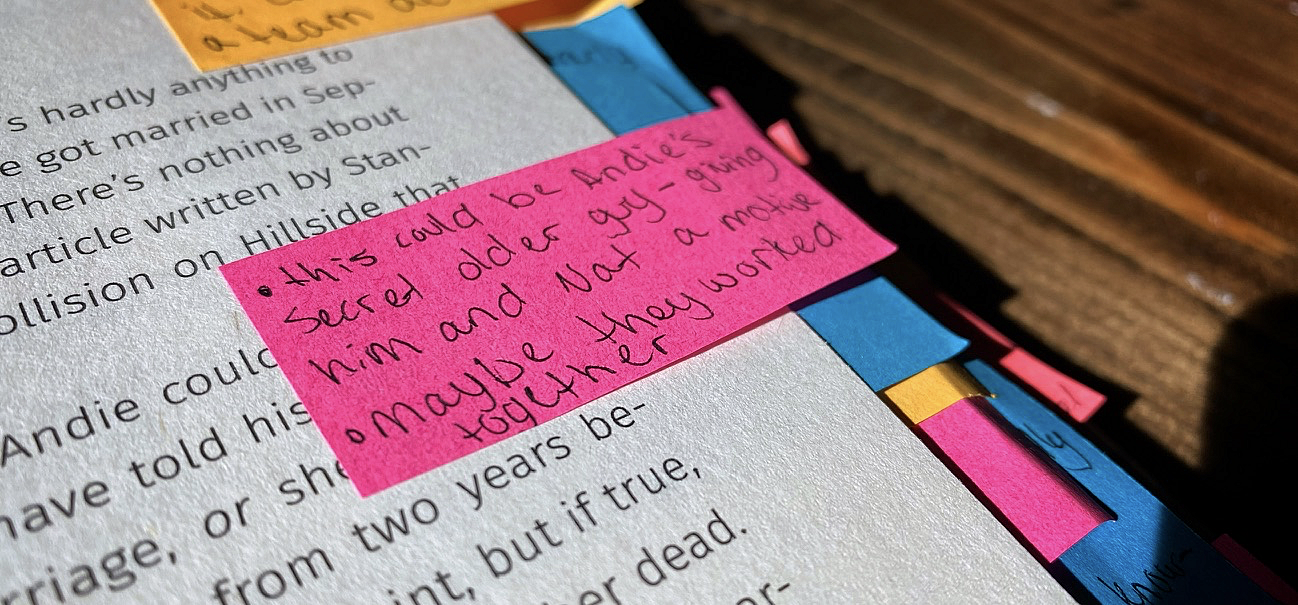 it
a team
's hardly anything to
e got married in Sep-
There's nothing about
article written by Stan-
ollision on Hillside that
• this could be Andie's
secret older guy - giving
him and Nat a motive
• maybe they worked
together
Andie could
have told his
rriage, or she
from two years be-
int, but if true,
er dead.
er-
ly
know-